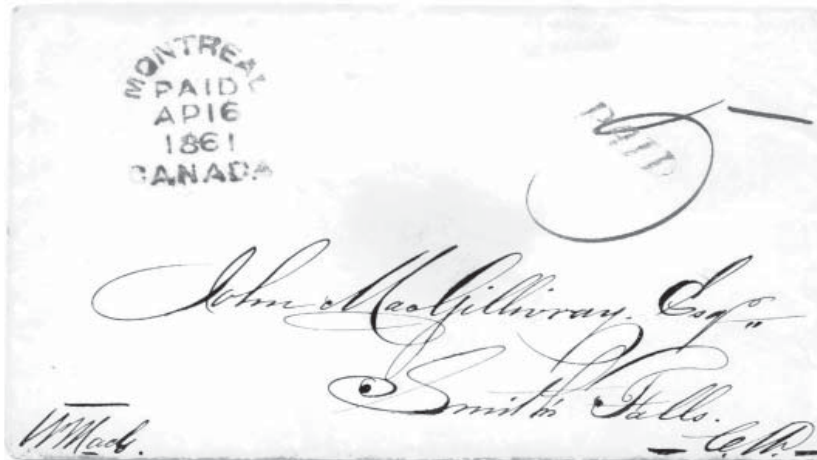 MONTREAL
PAID
AP 16
1861
CANADA
PAID
5
John MacGillivray. Esqr
Smith's Falls.
C.W.